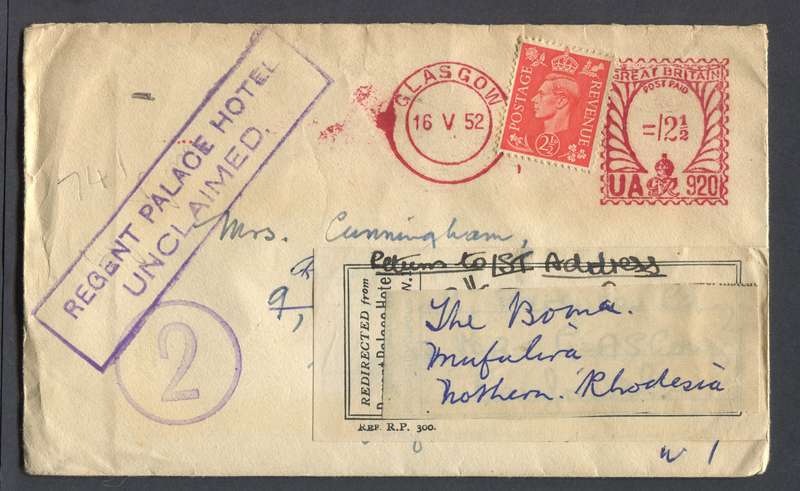 REGENT PALACE HOTEL
UNCLAIMED.
2
GLASGOW
16 V 52
POSTAGE
REVENUE
2½D
GREAT BRITAIN
POST PAID
=12½
UA 920
741
Mrs. Cunningham,
9,
Return to 1ST Address
REDIRECTED from
Regent Palace Hotel
The Boma.
Mufulira
Nothern. Rhodesia
REF. R.P. 300.
W 1